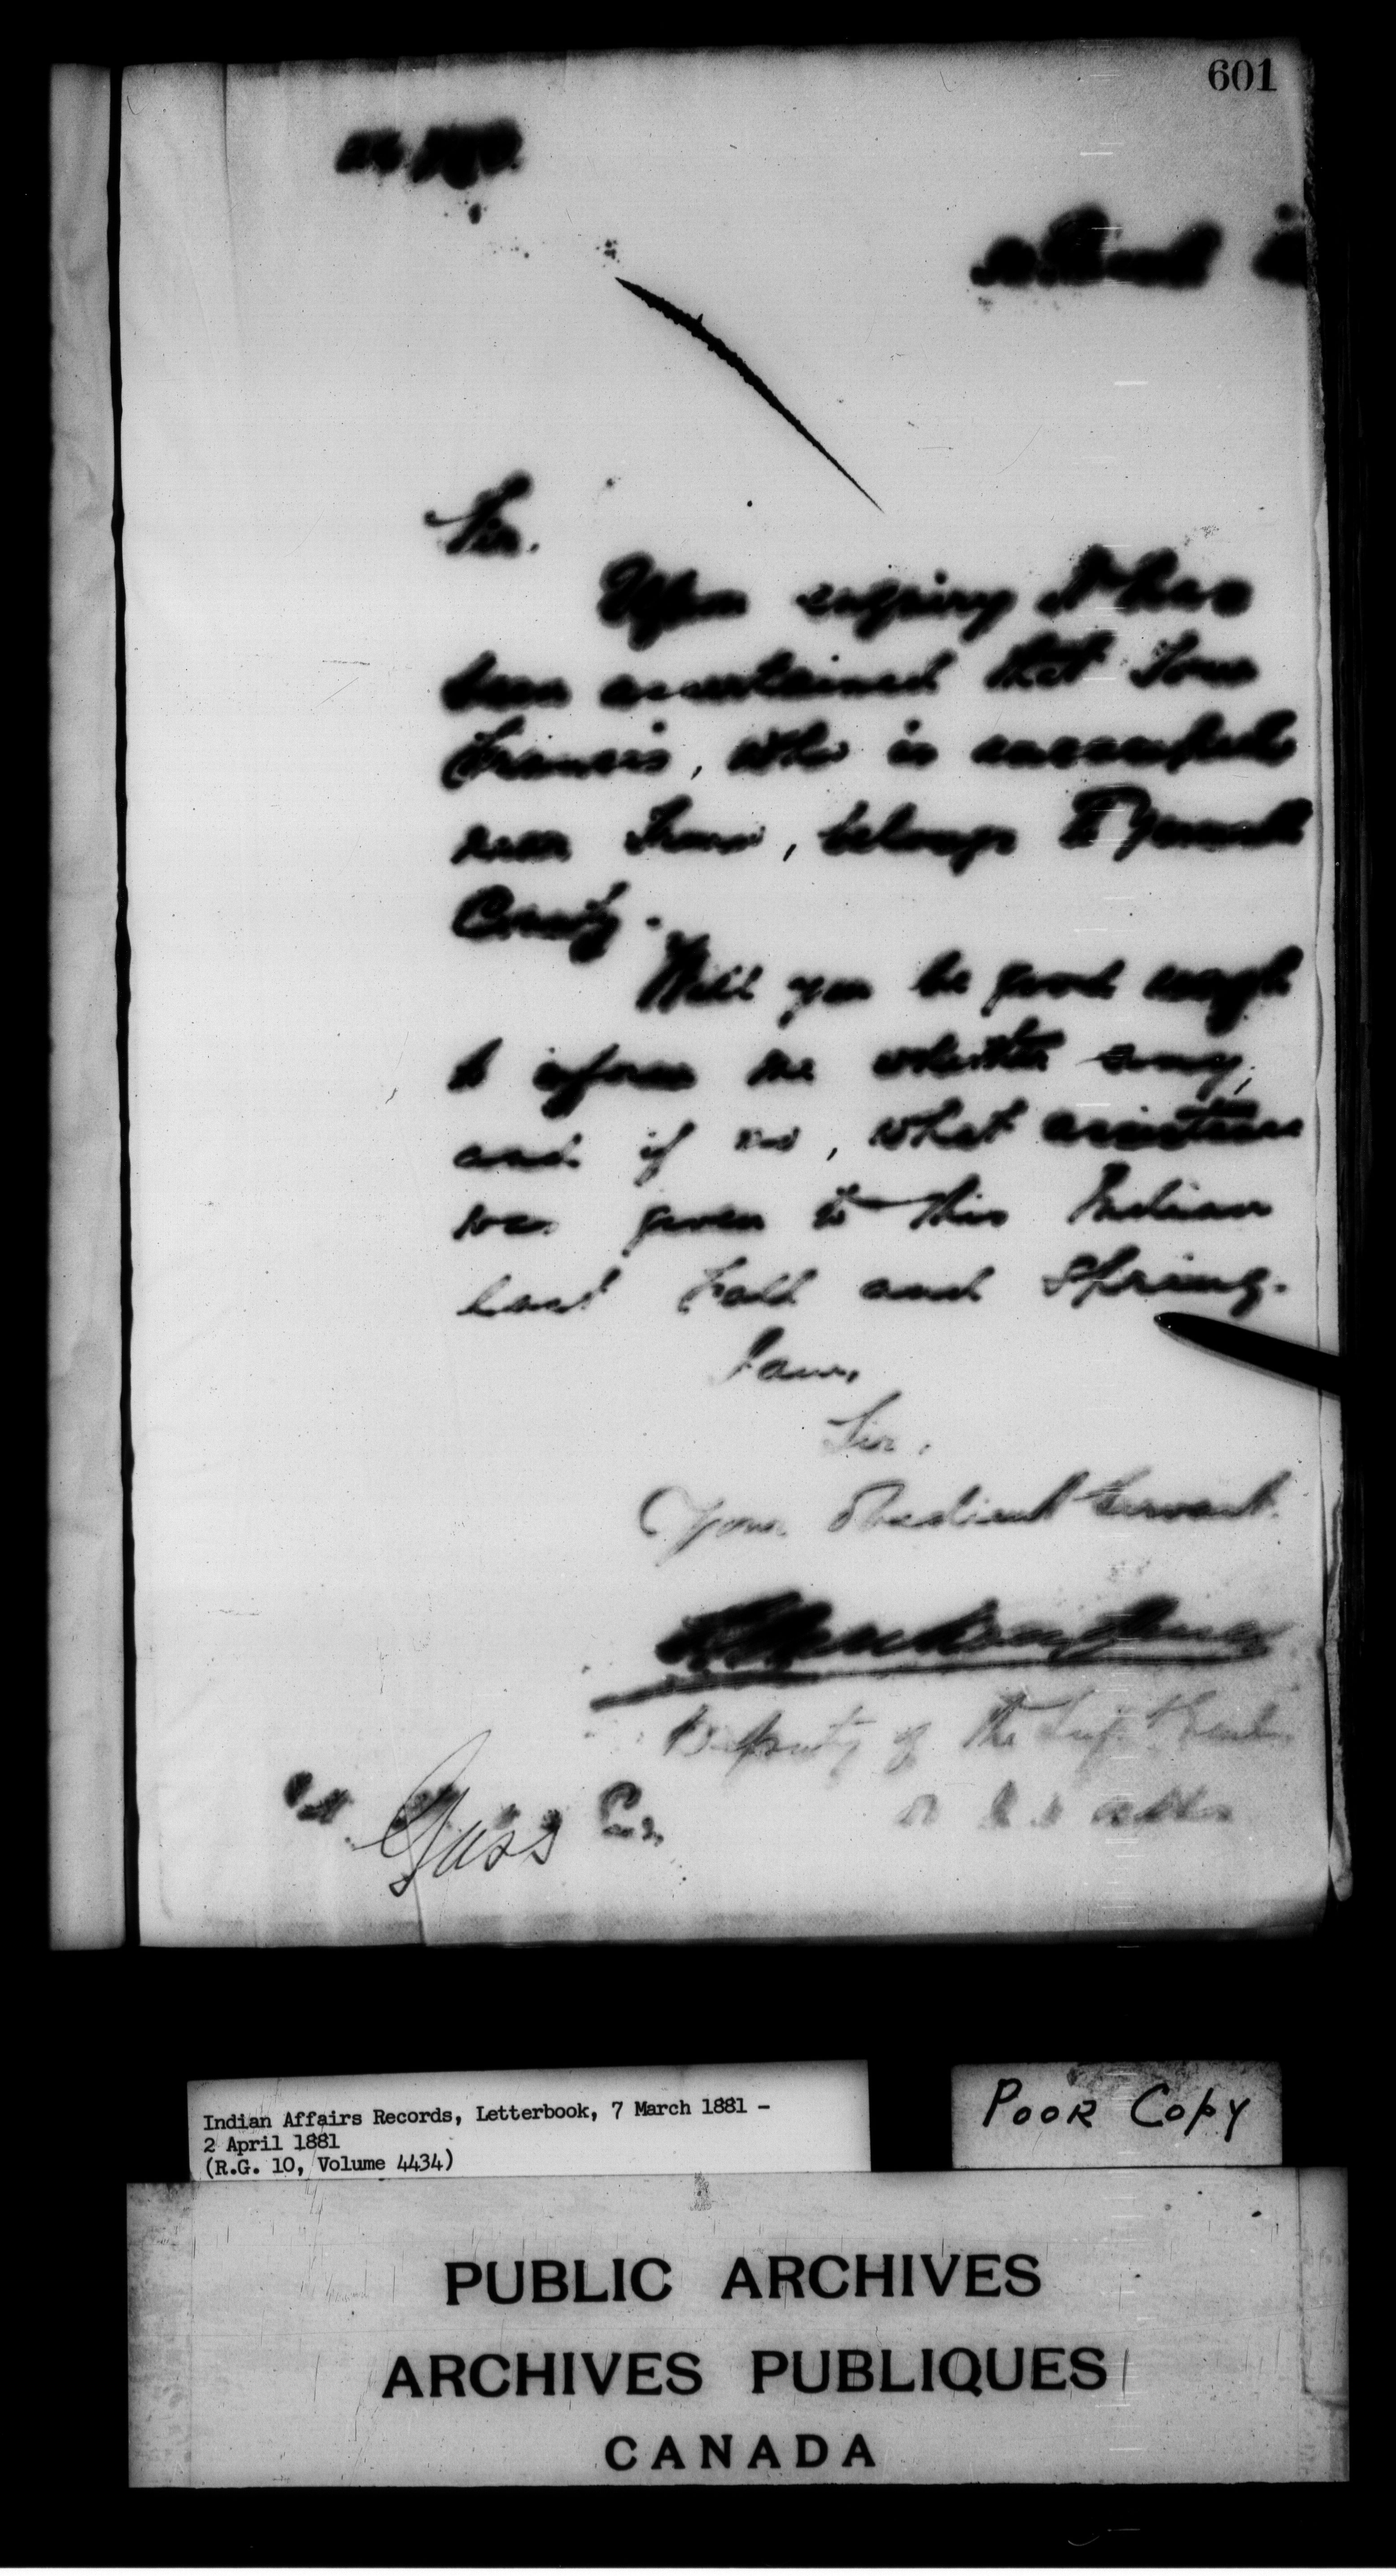 601
Sir.
Upon enquiry it has
been ascertained that Tom
Francis, who is encamped
near Truro, belongs to Yarmouth
County.
Will you be good enough
to inform me whether any,
and if so, what assistance
was given to this Indian
last Fall and Spring.
I am,
Sir,
Your obedient Servant.
Deputy of the Supt. Genl.
of Ind. Affrs
Gass Esq.
Indian Affairs Records, Letterbook, 7 March 1881 -
2 April 1881
(R.G. 10, Volume 4434)
POOR COPY
PUBLIC ARCHIVES
ARCHIVES PUBLIQUES
CANADA